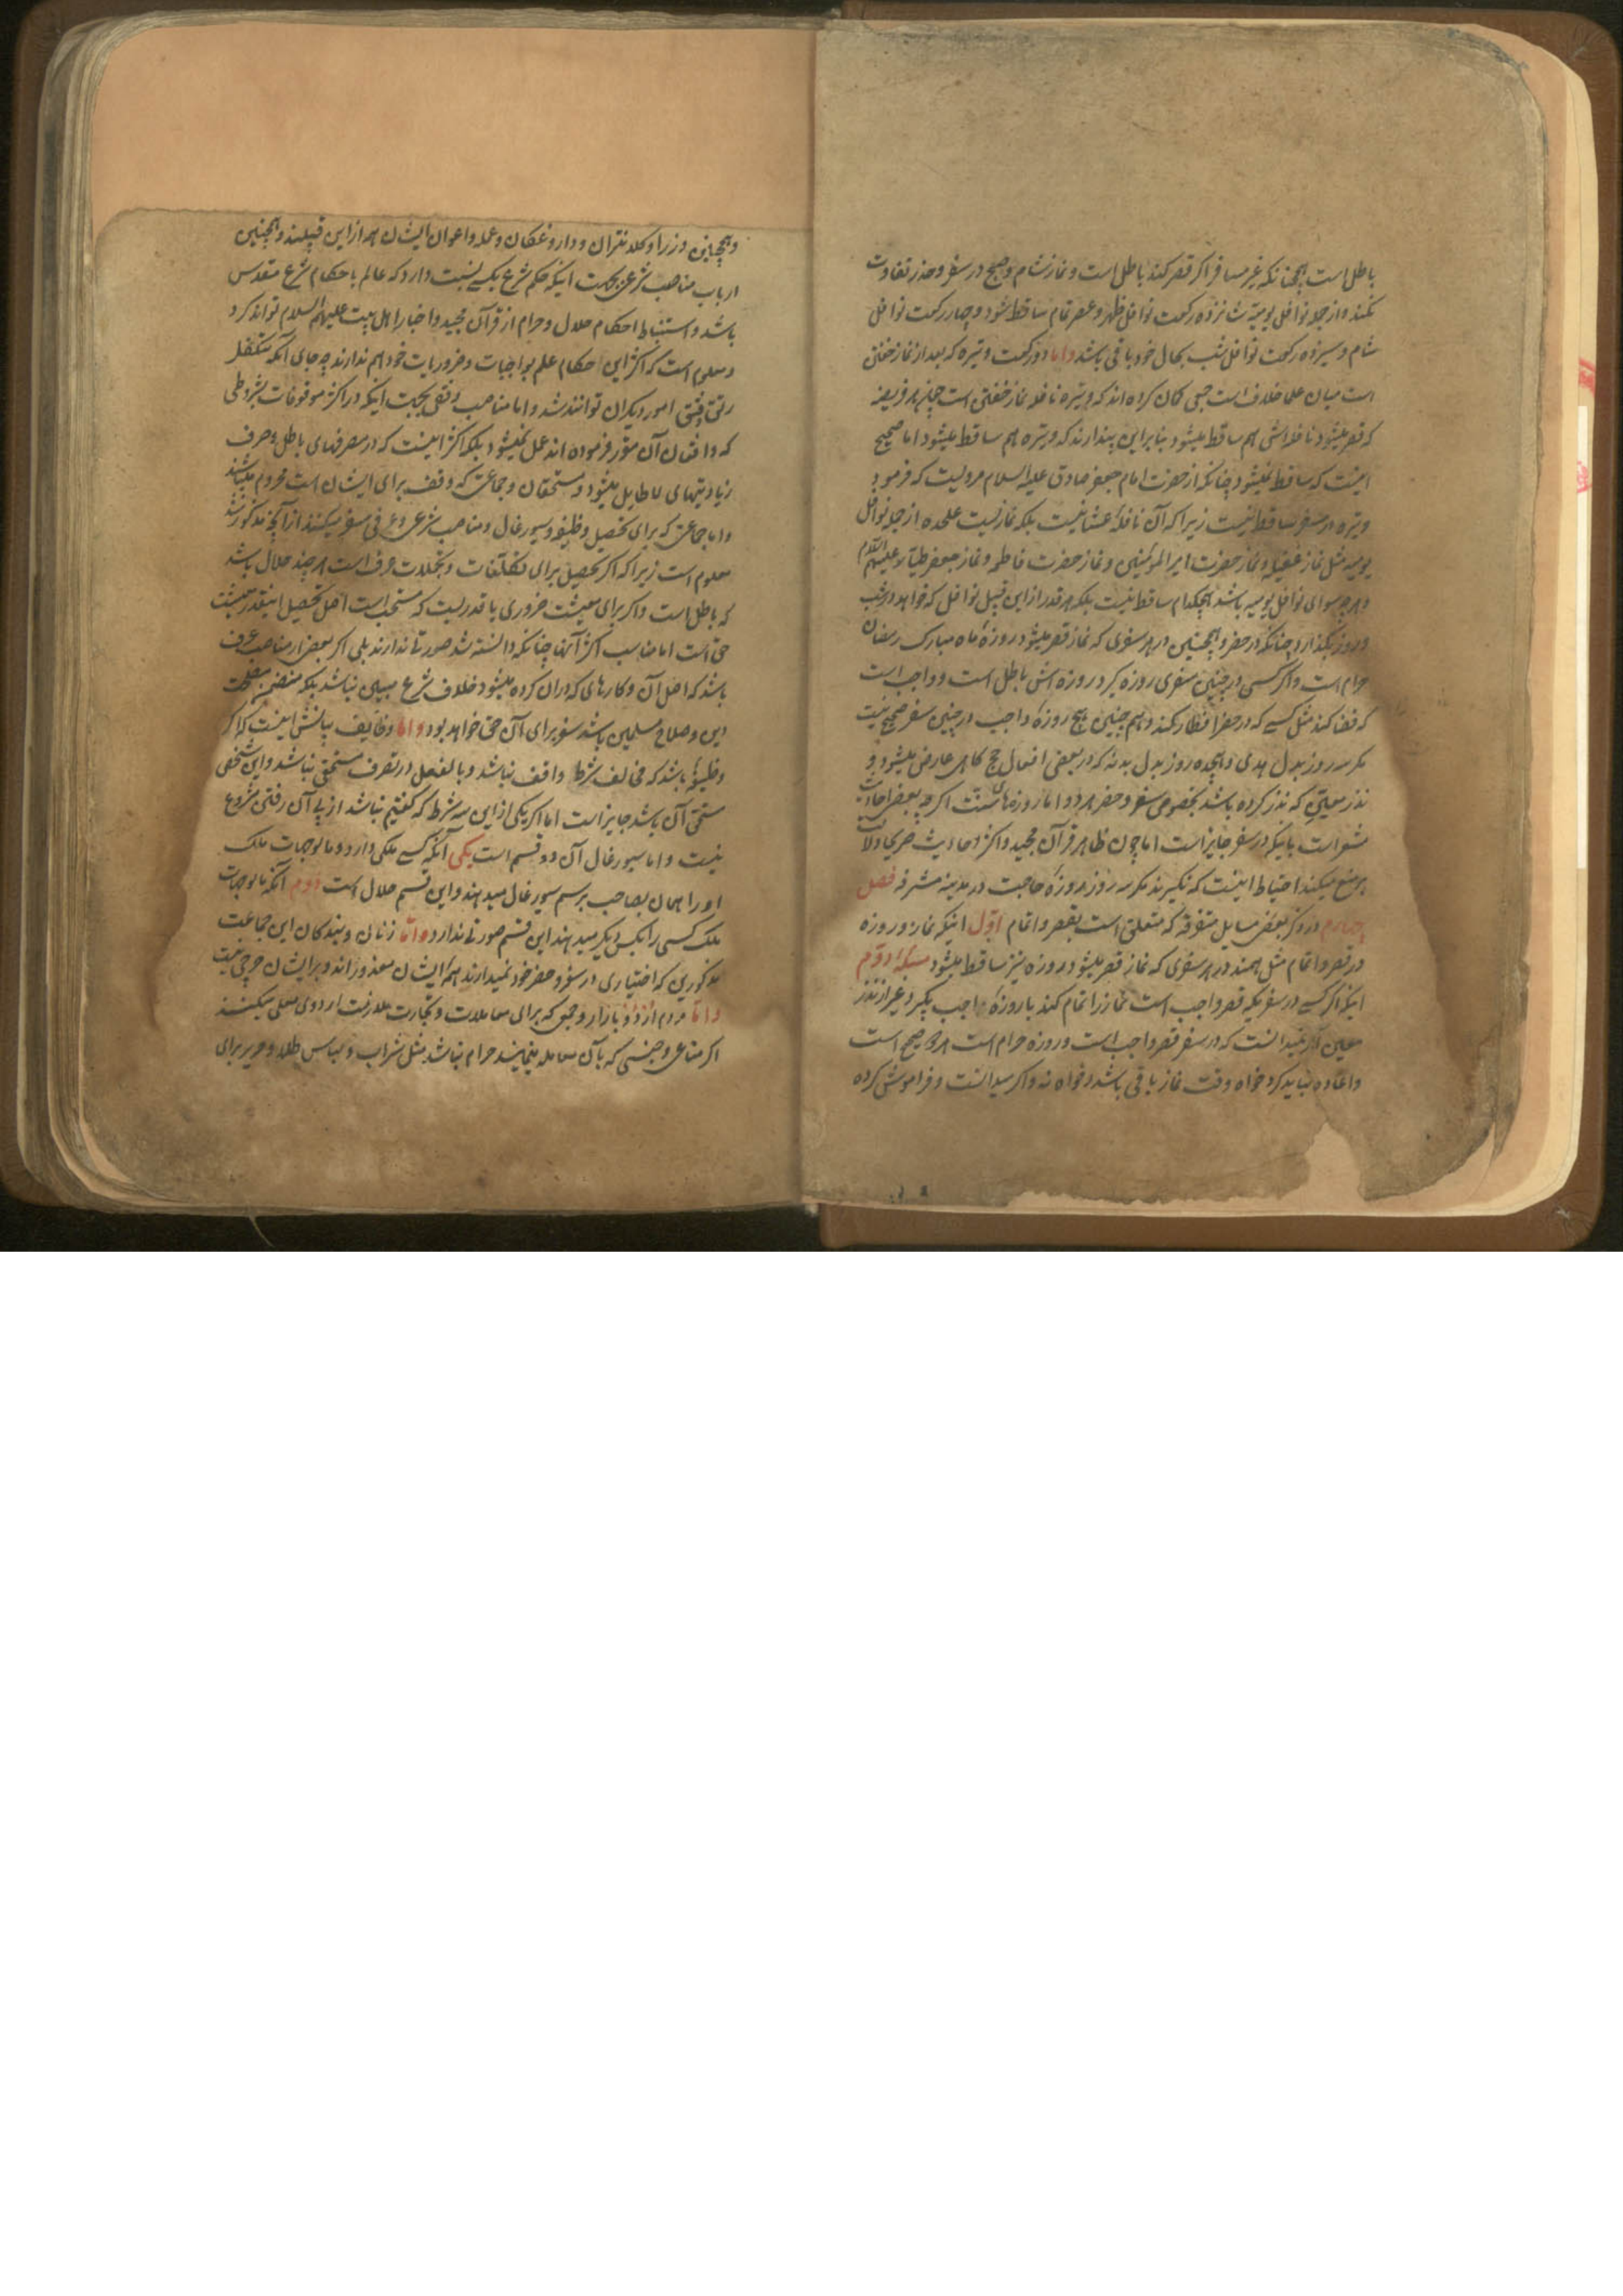 باطل است همچنانکه غیر مسافر اگر قصر کند باطل است و نماز شام و صبح در سفر و حضر تفاوت
نمیکند و از جمله نوافل یومیه شانزده رکعت نوافل ظهر و عصر تمام ساقط میشود و چهار رکعت نوافل
شام و سیزده رکعت نوافل شب بحال خود باقی باشد و اما دو رکعت وتیره که بعد از نماز خفتن
است میان علما خلاف است جمعی گمان کرده اند که وتیره نافله نماز خفتن است چون هر فریضه
که قصر میشود نافله اش هم ساقط میشود بنابراین پندارند که وتیره هم ساقط میشود اما صحیح
اینست که ساقط نمیشود چنانکه از حضرت امام جعفر صادق علیه السلام مرویست که فرمود
وتیره در سفر ساقط نیست زیرا که آن نافله عشا نیست بلکه نمازیست علیحده از جمله نوافل
یومیه مثل نماز غفیله و نماز حضرت امیر المومنین و نماز حضرت فاطمه و نماز جعفر طیار علیهم السلام
و هرچه سوای نوافل یومیه باشد هیچکدام ساقط نیست بلکه هر قدر از این قبیل نوافل که خواهد در شب
و روز بگذارد چنانکه در حضر و همچنین در هر سفری که نماز قصر میشود روزه ماه مبارک رمضان
حرام است و اگر کسی در چنین سفری روزه گیرد روزه اش باطل است و واجب است
که قضا کند مثل کسی که در حضر افطار کند و هم چنین هیچ روزه واجب در چنین سفر صحیح نیست
مگر سه روز بدل هدی و هجده روز بدل بدنه که در بعضی افعال حج گاهی عارض میشود و
نذر معین که نذر کرده باشد بخصوص سفر و حضر هر دو اما روزه های سنت اگرچه بعضی احادیث
مشعر است باینکه در سفر جایز است اما چون ظاهر قرآن مجید و اکثر احادیث صریحا دلالت
بر منع میکند احتیاط اینست که نگیرند مگر سه روز روزه حاجت در مدینه مشرفه فصل
چهارم در ذکر بعضی مسایل متفرقه که متعلق است بقصر و اتمام اول اینکه نماز و روزه
در قصر و اتمام مثل همند در هر سفری که نماز قصر میشود روزه نیز ساقط میشود مسئله دوم
اینکه اگر کسی در سفری که قصر واجب است نماز را تمام کند یا روزه واجب بگیرد غیر از نذر
معین اگر نمیدانست که در سفر قصر واجب است و روزه حرام است هر دو صحیح است
و اعاده نباید کرد خواه وقت نماز باقی باشد و خواه نه و اگر میدانست و فراموش کرده
و همچنین وزرا و کلانتران و داروغگان و عمله و اعوان ایشان هم از این قبیلند و همچنین
ارباب مناصب شرعی بجهت اینکه حکم شرع بکسی نسبت دارد که عالم باحکام شرع مقدس
باشد و استنباط احکام حلال و حرام از قرآن مجید و اخبار اهل بیت علیهم السلام تواند کرد
و معلوم است که اکثر این احکام علم بواجبات و ضروریات خود هم ندارند چه جای آنکه متکفل
رتق و فتق امور دیگران توانند شد و اما مناصب وقفی بجهت اینکه در اکثر موقوفات بشروطی
که واقفان آن مقرر فرموده اند عمل نمیشود بلکه اکثر اینست که در مصرفهای باطل و صرف
زیادتیهای لا طایل میشود و مستحقان و جماعتی که وقف برای ایشان است محروم میباشند
و اما جماعتی که برای تحصیل وظیفه و سیورغال و مناصب شرعی و عرفی سفر میکنند از آنچه مذکور شد
معلوم است زیرا که اگر تحصیل برای تکلفات و تجملات صرف است هرچند حلال باشد
که باطل است و اگر برای معیشت ضروری یا قدریست که مستحب است اصل تحصیل اینقدر معیشت
حق است اما مناسب اکثر آنها چنانکه دانسته شد صورتی ندارند بلی اگر بعضی از مناصب عرف
باشد که اصل آن و کارهای که در آن کرده میشود خلاف شرع مبین نباشد بلکه متضمن مصلحت
دین و صلاح مسلمین باشد سفر برای آن حق خواهد بود و اما وظایف بیانش اینست که اگر
وظیفه باشد که مخالف شرط واقف نباشد و بالفعل در تصرف مستحقی نباشد و این شخص
مستحق آن باشد جایز است اما اگر یکی از این سه شرط که گفتیم نباشد از پی آن رفتن مشروع
نیست و اما سیورغال آن دو قسم است یکی آنکه کسی ملکی دارد و مالوجهات ملک
او را همان بصاحب برسم سیورغال میدهند و این قسم حلال است دوم آنکه مالوجهات
ملک کسی را بکس دیگر میدهند این قسم صورتی ندارد و اما زنان و بندگان این جماعت
مذکورین که اختیاری در سفر و حضر خود نمیدارند همه ایشان معذورند و بر ایشان حرجی نیست
و اما مردم اردو بازار و جمعی که برای معاملات و تجارت ملازمت اردوی معلی میکنند
اگر متاعی و جنسی که بآن معامله مینمایند حرام نباشد مثل شراب و لباس طلا و حریر برای